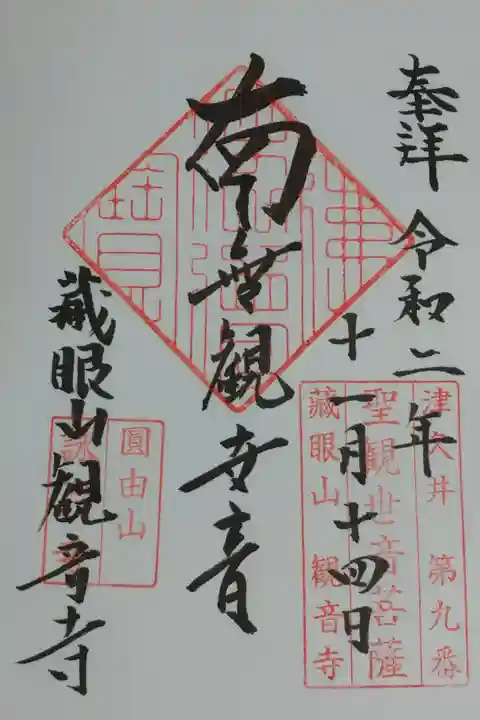 奉拝
令和二年
十一月十四日
津久井 第九番
聖観世音菩薩
藏眼山 観音寺
南無観世音
圓由山
藏眼山観音寺